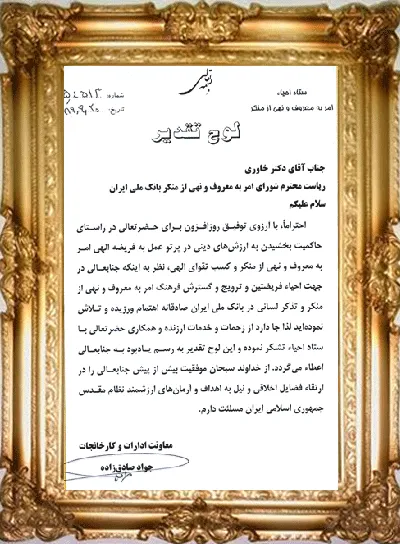 باسمه تعالی
ستاد احیاء
امر به معروف و نهی از منکر
شماره:
تاریخ:
لوح تقدیر
جناب آقای دکتر خاوری
ریاست محترم شورای امر به معروف و نهی از منکر بانک ملی ایران
سلام علیکم
احتراماً، با آرزوی توفیق روزافزون برای حضرتعالی در راستای
حاکمیت بخشیدن به ارزش‌های دینی در پرتو عمل به فریضه الهی امر
به معروف و نهی از منکر و کسب تقوای الهی، نظر به اینکه جنابعالی در
جهت احیاء فریضتین و ترویج و گسترش فرهنگ امر به معروف و نهی از
منکر و تذکر لسانی در بانک ملی ایران صادقانه اهتمام ورزیده و تلاش
نموده‌اید لذا جا دارد از زحمات و خدمات ارزنده و همکاری حضرتعالی با
ستاد احیاء تشکر نموده و این لوح تقدیر به رسم یادبود به جنابعالی
اعطاء می‌گردد. از خداوند سبحان موفقیت بیش از پیش جنابعالی را در
ارتقاء فضایل اخلاقی و نیل به اهداف و آرمان‌های ارزشمند نظام مقدس
جمهوری اسلامی ایران مسئلت دارم.
معاونت ادارات و کارخانجات
جواد صادق‌زاده